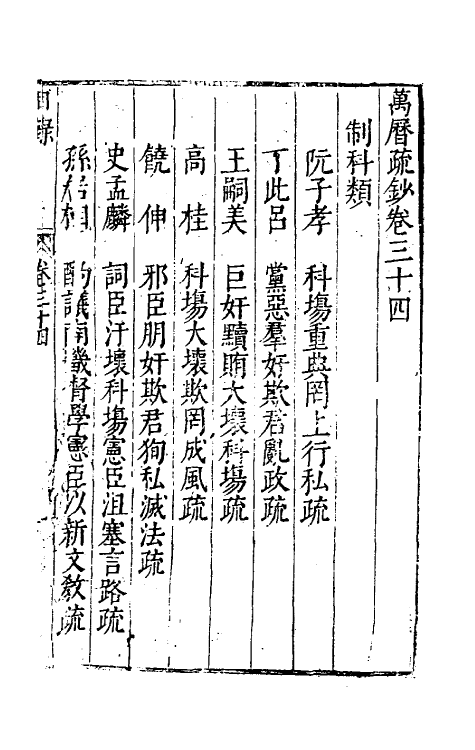 萬曆疏鈔卷三十四
制科類
阮子孝 科場重典罔上行私疏
丁此呂 黨惡羣奸欺君亂政疏
王嗣美 巨奸黷賄大壞科場疏
高桂 科場大壞欺罔成風疏
饒伸 邪臣朋奸欺君狥私滅法疏
史孟麟 詞臣汙壞科場憲臣沮塞言路疏
孫居相 酌議南畿督學憲臣以新文教疏
目錄 卷三十四